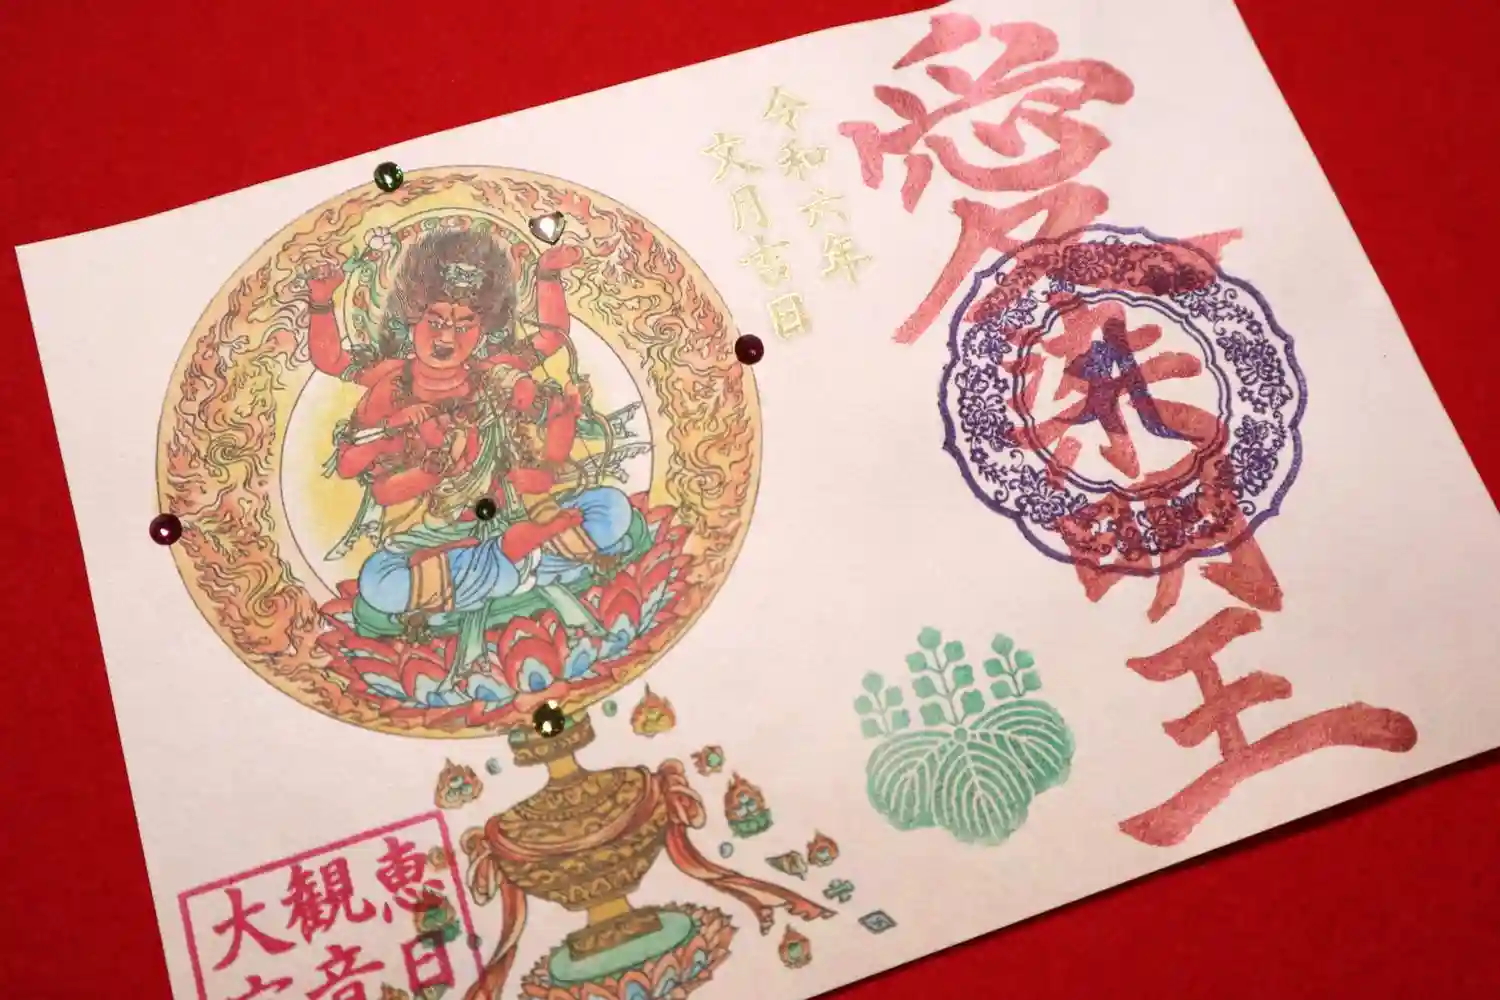 愛染明王
令和六年
文月吉日
恵日
観音
大